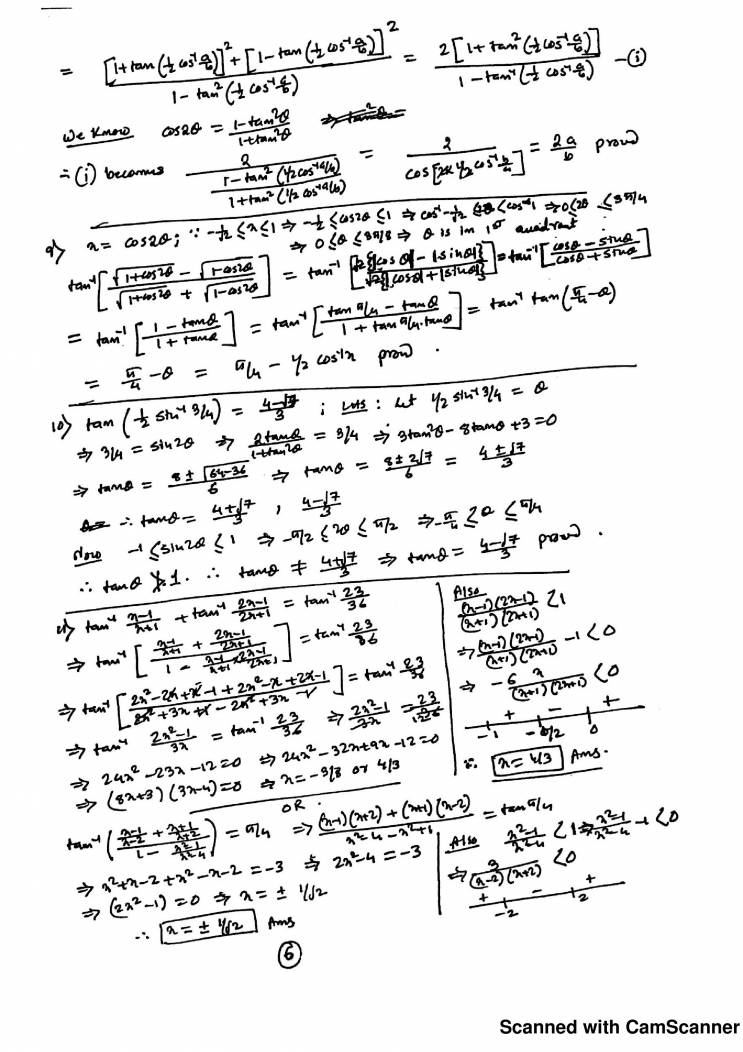 = [1+tan(½ cos⁻¹ a/b)]² + [1-tan(½ cos⁻¹ a/b)]² / 1-tan²(½ cos⁻¹ a/b) = 2[1+tan²(½ cos⁻¹ a/b)] / 1-tan²(½ cos⁻¹ a/b) —(i)
We Know cos2θ = 1-tan²θ / 1+tan²θ
∴ (i) becomes 2 / (1-tan²(½cos⁻¹a/b) / 1+tan²(½cos⁻¹a/b)) = 2 / cos[2x½cos⁻¹ b/a] = 2a/b proved
9> x = cos2θ ; ∵ -1/√2 ≤ x ≤ 1 ⇒ -1/√2 ≤ cos2θ ≤ 1 ⇒ cos⁻¹ -1/√2 ≤ 2θ ≤ cos⁻¹1 ⇒ 0 ≤ 2θ ≤ 3π/4
⇒ 0 ≤ θ ≤ 3π/8 ⇒ θ is in 1st quadrant
tan⁻¹[√1+cos2θ - √1-cos2θ / √1+cos2θ + √1-cos2θ] = tan⁻¹[√2{|cosθ| - |sinθ|} / √2{|cosθ| + |sinθ|}] = tan⁻¹[cosθ - sinθ / cosθ + sinθ]
= tan⁻¹[1 - tanθ / 1 + tanθ] = tan⁻¹[tan π/4 - tanθ / 1 + tan π/4 . tanθ] = tan⁻¹ tan(π/4 - θ)
= π/4 - θ = π/4 - ½ cos⁻¹x proved.
10> tan(½ sin⁻¹ 3/4) = 4-√7 / 3 ; LHS : Let ½ sin⁻¹ 3/4 = θ
⇒ 3/4 = sin2θ ⇒ 2tanθ / 1+tan²θ = 3/4 ⇒ 3tan²θ - 8tanθ + 3 = 0
⇒ tanθ = 8 ± √64-36 / 6 ⇒ tanθ = 8 ± 2√7 / 6 = 4 ± √7 / 3
∴ tanθ = 4+√7 / 3 , 4-√7 / 3
Now -1 ≤ sin2θ ≤ 1 ⇒ -π/2 ≤ 2θ ≤ π/2 ⇒ -π/4 ≤ θ ≤ π/4
∴ tanθ ≯ 1. ∴ tanθ ≠ 4+√7 / 3 ⇒ tanθ = 4-√7 / 3 proved.
tan⁻¹ x-1/x+1 + tan⁻¹ 2x-1/2x+1 = tan⁻¹ 23/36
⇒ tan⁻¹[x-1/x+1 + 2x-1/2x+1 / 1 - x-1/x+1 × 2x-1/2x+1] = tan⁻¹ 23/36
⇒ tan⁻¹[2x²-2x+x-1+2x²-x+2x-1 / 2x²+3x+1-2x²+3x-1] = tan⁻¹ 23/36
⇒ tan⁻¹ 2x²-1 / 3x = tan⁻¹ 23/36 ⇒ 2x²-1 / 3x = 23/36
⇒ 24x²-23x-12=0 ⇒ 24x²-32x+9x-12=0
⇒ (8x+3)(3x-4)=0 ⇒ x = -3/8 or 4/3
Also
(x-1)(2x-1) / (x+1)(2x+1) < 1
⇒ (x-1)(2x-1) / (x+1)(2x+1) - 1 < 0
⇒ -6 x / (x+1)(2x+1) < 0
+ - +
-1 -1/2 0
∴ x = 4/3 Ans.
OR
tan⁻¹(x-1/x-2 + x+1/x+2 / 1 - x²-1/x²-4) = π/4 ⇒ (x-1)(x+2) + (x+1)(x-2) / x²-4-x²+1 = tan π/4
⇒ x²+x-2+x²-x-2 = -3 ⇒ 2x²-4 = -3
⇒ (2x²-1) = 0 ⇒ x = ± 1/√2
∴ x = ± 1/√2 Ans
Also x²-1 / x²-4 < 1 ⇒ x²-1 / x²-4 - 1 < 0
⇒ 3 / (x-2)(x+2) < 0
+ - +
-2 2
6
Scanned with CamScanner